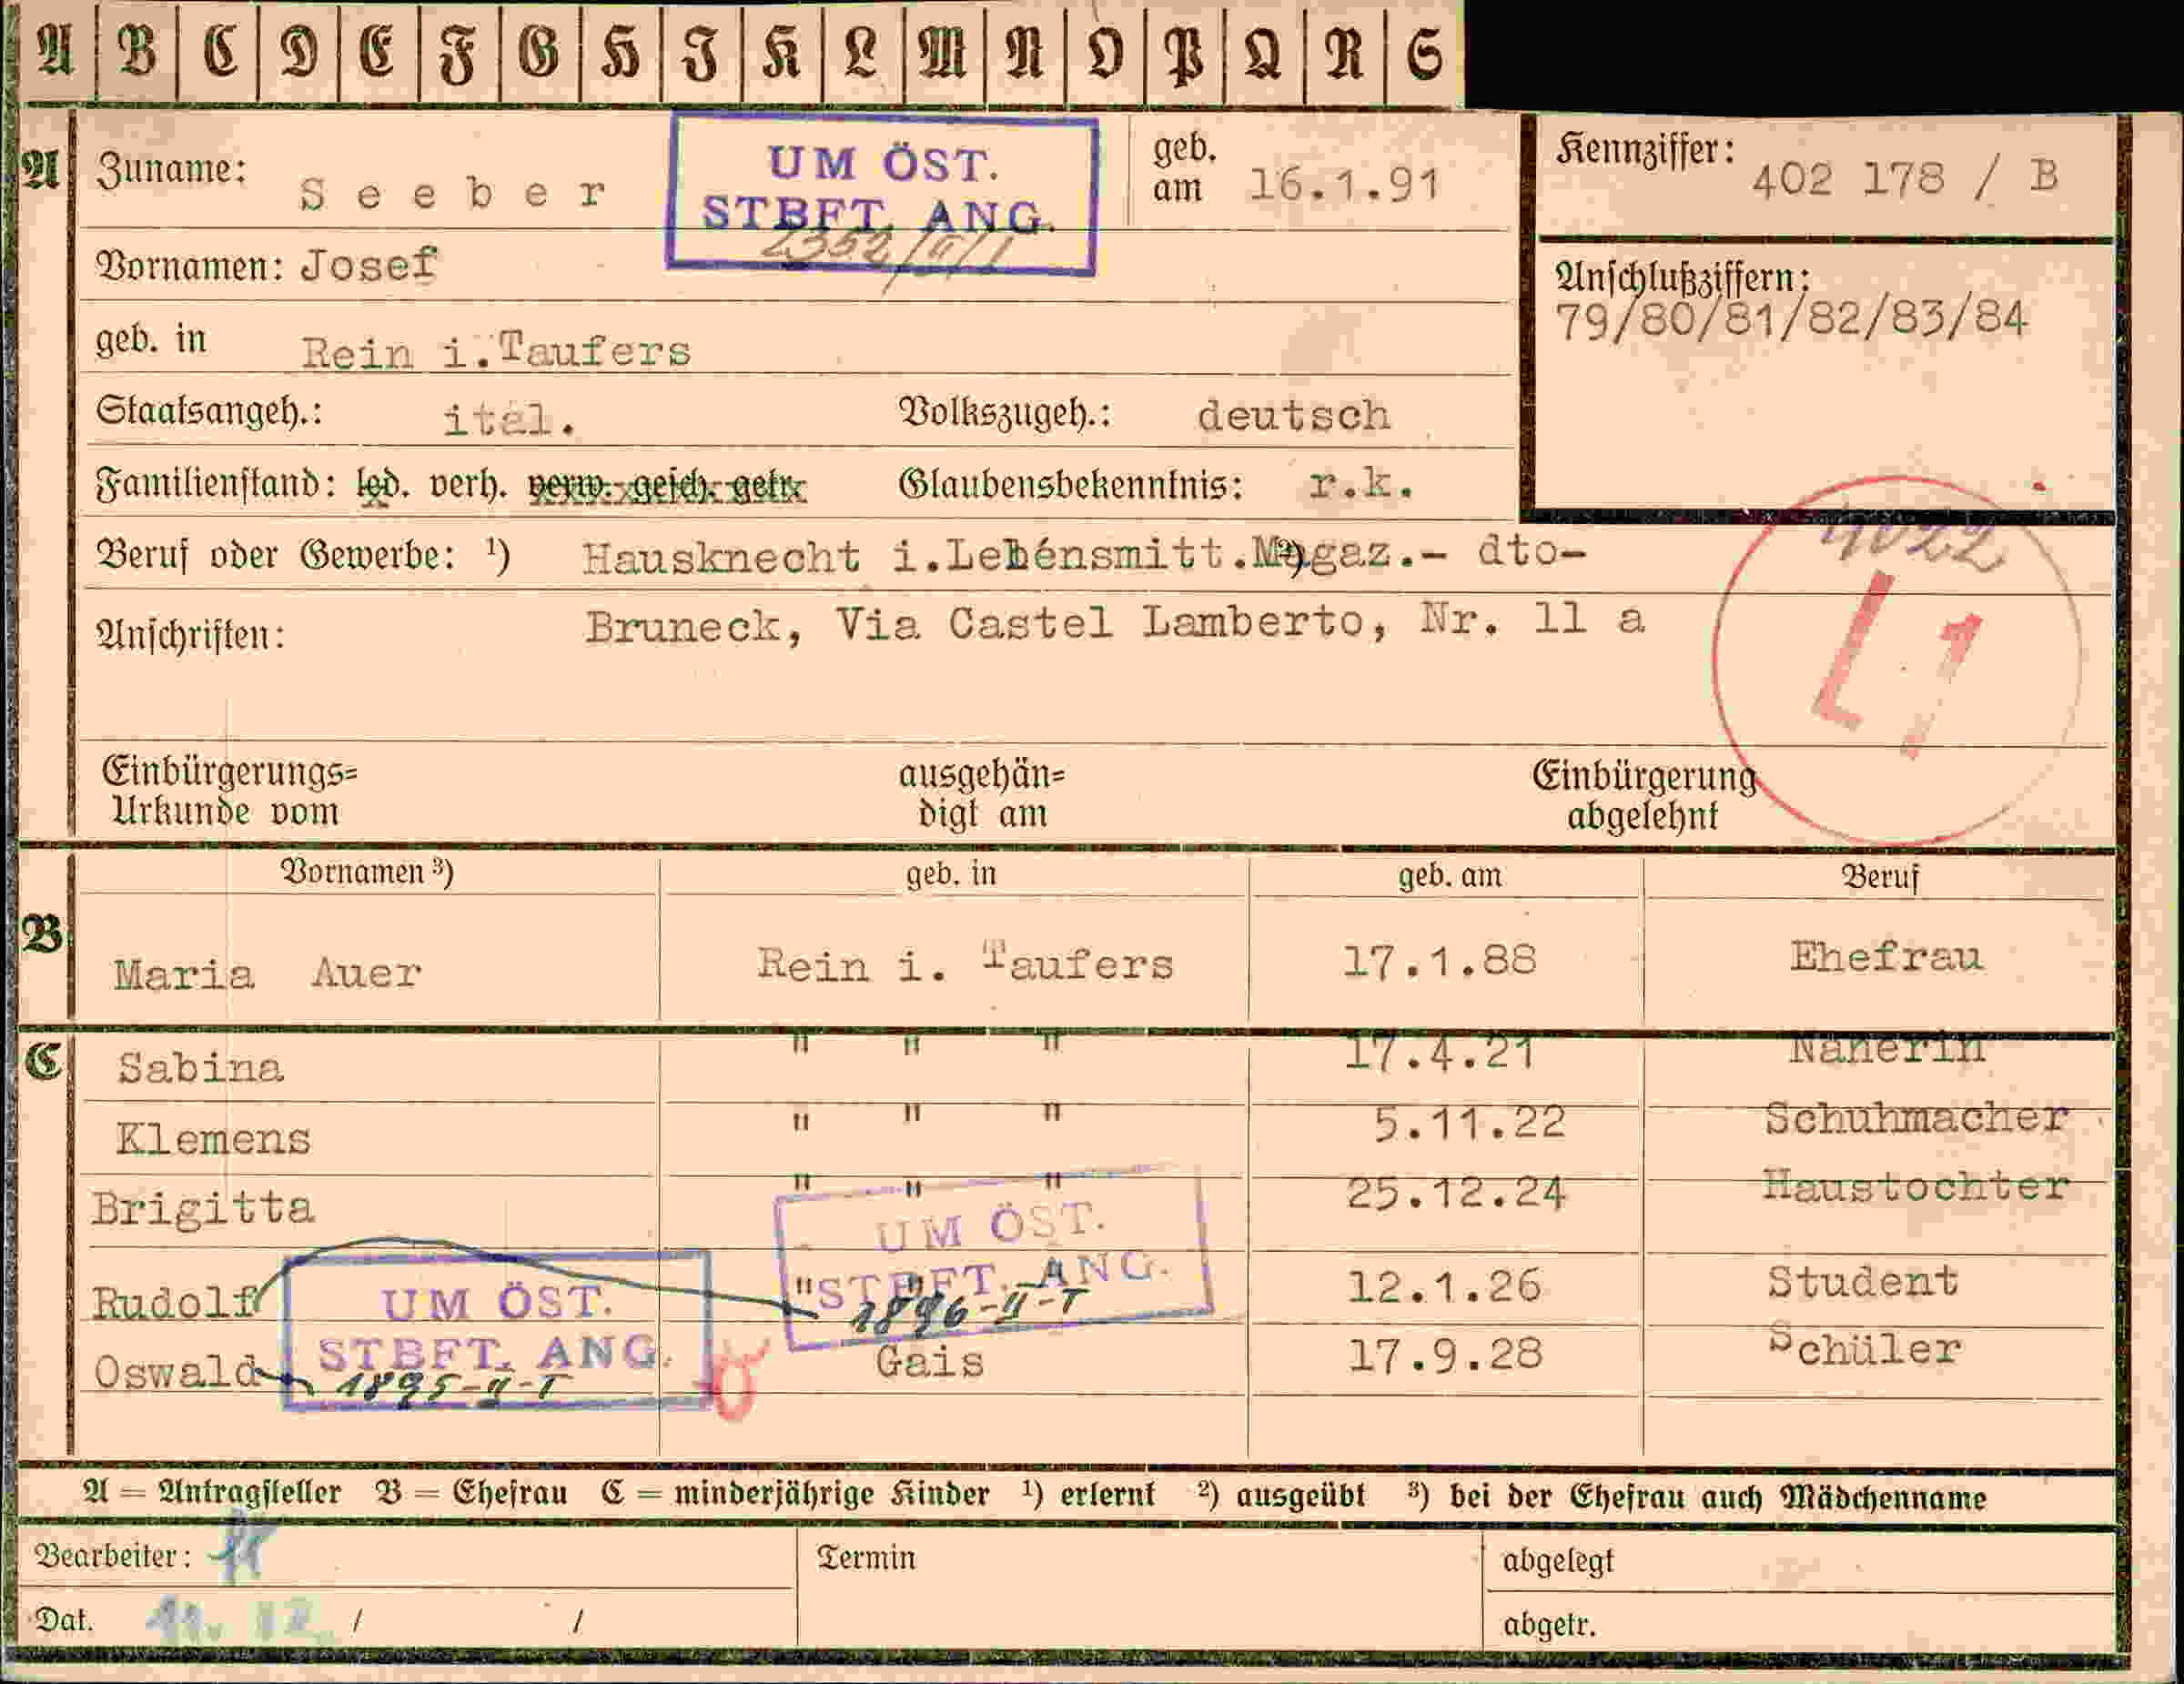 A B C D E F G H I K L M N O P Q R S
A Zuname: Seeber
UM ÖST.
STBFT. ANG.
2352/II/1
geb. am 16.1.91
Kennziffer: 402 178 / B
Vornamen: Josef
Anschlußziffern:
79/80/81/82/83/84
geb. in Rein i.Taufers
Staatsangeh.: ital. Volkszugeh.: deutsch
Familienstand: led. verh. verw. gesch. getr. Glaubensbekenntnis: r.k.
Beruf oder Gewerbe: ¹) Hausknecht i.Lebensmitt.Magaz.- dto-
4022
L 1
Anschriften: Bruneck, Via Castel Lamberto, Nr. 11 a
Einbürgerungs= ausgehän= Einbürgerung
Urkunde vom digt am abgelehnt
Vornamen ³) geb. in geb. am Beruf
B Maria Auer Rein i. Taufers 17.1.88 Ehefrau
C Sabina " " " 17.4.21 Näherin
Klemens " " " 5.11.22 Schuhmacher
Brigitta " " " 25.12.24 Haustochter
UM ÖST.
STBFT. ANG.
1896-II-T
Rudolf " " 12.1.26 Student
UM ÖST.
STBFT. ANG.
1895-II-T
Oswald Gais 17.9.28 Schüler
A = Antragsteller B = Ehefrau C = minderjährige Kinder ¹) erlernt ²) ausgeübt ³) bei der Ehefrau auch Mädchenname
Bearbeiter: Termin abgelegt
Dat. 11. 12. / / abgetr.